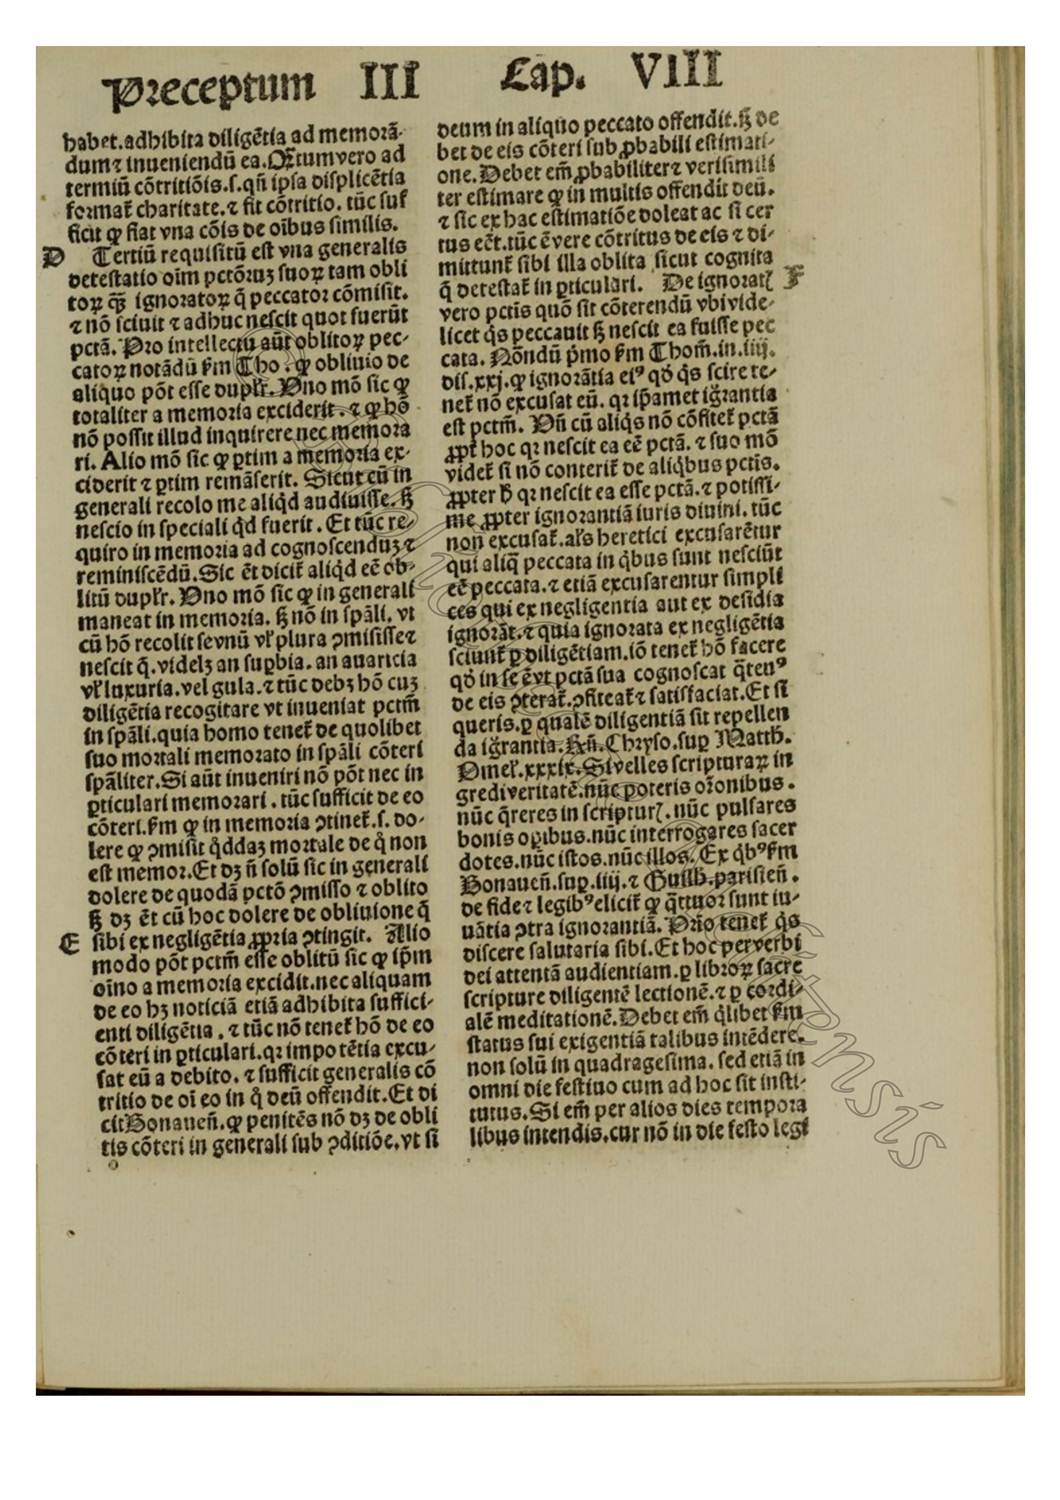 Preceptum III Cap. VIII
habet.adhibita diligẽtia ad memorã-
dum⁊ inueniendũ ea.Q̃tum vero ad
termiũ cõtritiõis.s.qñ ipsa displicẽtia
format᷑ charitate.⁊ fit cõtritio.tũc suf
ficit ꝙ fiat vna cõis de oĩbus similis.
D Tertiũ requisitũ est vna generalis
detestatio oĩm pctõruꝫ suoꝝ tam obli
toꝝ q̃ꝫ ignoratoꝝ q̃ peccator cõmisit.
⁊ nõ sciuit ⁊ adhuc nescit quot fuerũt
pctã. Pro intellectu aũt oblitoꝝ pec-
catoꝝ notãdũ ẜm Tho. ꝙ obliuio de
aliquo põt esse dupłr. Uno mõ sic ꝙ
totaliter a memoria exciderit. ⁊ ꝙ hõ
nõ possit illud inquirere nec memora
ri. Alio mõ sic ꝙ ꝑtim a memoria ex-
ciderit ⁊ ꝑtim remãserit. Sicut cũ in
generali recolo me aliqͥd audiuisse. sꝫ
nescio in speciali qͥd fuerit. Et tũc re-
quiro in memoria ad cognoscenduꝫ ⁊
reminiscẽdũ. Sic ẽt dicit᷑ aliqͥd eẽ ob-
litũ dupłr. Uno mõ sic ꝙ in generali
maneat in memoria. sꝫ nõ in spãli. vt
cũ hõ recolit se vnũ vł plura ꝯmisisse ⁊
nescit q̃. videlꝫ an suꝑbia. an auaricia
vł luxuria. vel gula. ⁊ tũc debꝫ hõ cuꝫ
diligẽtia recogitare vt inueniat pctm̃
in spãli. quia homo tenet᷑ de quolibet
suo mortali memorato in spãli cõteri
spãliter. Si aũt inueniri nõ põt nec in
ꝑticulari memorari. tũc sufficit de eo
cõteri. ẜm ꝙ in memoria ꝯtinet᷑. s. do-
lere ꝙ ꝯmisit qͦddaꝫ mortale de qͦ non
est memor. Et dꝫ ñ solũ sic in generali
dolere de quodã pctõ ꝯmisso ⁊ oblito
sꝫ dꝫ ẽt cũ hoc dolere de obliuione q̃
E sibi ex negligẽtia ꝓpria ꝯtingit. Alio
modo põt pctm̃ esse oblitũ sic ꝙ ip̃m
oĩno a memoria excidit. nec aliquam
de eo hꝫ noticiã etiã adhibita suffici-
enti diligẽtia. ⁊ tũc nõ tenet᷑ hõ de eo
cõteri in ꝑticulari. qꝛ impotẽtia excu-
sat eũ a debito. ⁊ sufficit generalis cõ
tritio de oĩ eo in qͦ deũ offendit. Et di
cit Bonauen̄. ꝙ penitẽs nõ dꝫ de obli
tis cõteri in generali sub ꝯditiõe. vt si
deum in aliquo peccato offendit. sꝫ de
bet de eis cõteri sub ꝓbabili estimati-
one. Debet em̃ ꝓbabiliter ⁊ verisimili
ter estimare ꝙ in multis offendit deũ.
⁊ sic ex hac estimatiõe doleat ac si cer
tus eẽt. tũc ẽ vere cõtritus de eis ⁊ di-
mittunt᷑ sibi illa oblita sicut cognita
q̃ detestat᷑ in ꝑticulari. De ignoratꝭ F
vero pctĩs quõ sit cõterendũ vbi vide-
licet qͥs peccauit sꝫ nescit ea fuisse pec
cata. Nõndũ pͥmo ẜm Thom̃. in. iiij.
dis. xxj. ꝙ ignorãtia eiꝰ qd̓ qͥs scire te-
net᷑ nõ excusat eũ. qꝛ ip̃amet igr̃antia
est pctm̃. Uñ cũ aliqͥs nõ cõfitet᷑ pctã
ꝓpt᷑ hoc qꝛ nescit ea eẽ pctã. ⁊ suo mõ
videt᷑ si nõ conterit᷑ de aliqͥbus pctĩs.
ꝓpter h̓ qꝛ nescit ea esse pctã. ⁊ potissi-
me ꝓpter ignorantiã iuris diuini. tũc
non excusat᷑. ałs heretici excusarẽtur
qui aliq̃ peccata in qͥbus sunt nesciũt
eẽ peccata. ⁊ etiã excusarentur simpli
ces qui ex negligentia aut ex desidia
ignorãt. ⁊ quia ignorata ex negligẽtia
sciunt᷑ ꝑ diligẽtiam. iõ tenet᷑ hõ facere
qd̓ in se ẽ vt pctã sua cognoscat q̃tenꝰ
de eis ꝯterat᷑. ꝯfiteat᷑ ⁊ satisfaciat. Et si
queris. ꝑ qualẽ diligentiã sit repellen
da igr̃antia. Rñ. Chryso. suꝑ Matth.
Omel᷑. xxxix. Si velles scripturaꝝ in
gredi veritatẽ. nũc poteris or̃onibus.
nũc q̃reres in scripturꝭ. nũc pulsares
bonis oꝑibus. nũc interrogares sacer
dotes. nũc istos. nũc illos. Ex qͥbꝰ ẜm
Bonauen̄. suꝑ. iiij. ⁊ Guilh. parisien̄.
de fide ⁊ legibꝰ elicit᷑ ꝙ q̃ttuor sunt iu-
uãtia ꝯtra ignorantiã. Prĩo tenet᷑ qͥs
discere salutaria sibi. Et hoc per verbi
dei attentã audientiam. ꝑ libroꝝ sacre
scripture diligentẽ lectionẽ. ⁊ ꝑ cordi-
alẽ meditationẽ. Debet em̃ qͥlibet ẜm
status sui exigentiã talibus intẽdere.
non solũ in quadragesima. sed etiã in
omni die festiuo cum ad hoc sit insti-
tutus. Si em̃ per alios dies tempora
libus intendis. cur nõ in die festo legi